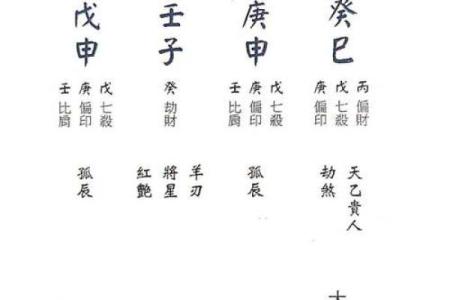 癸巳
庚申
壬子
戊申
丙偏財
戊七殺
庚偏印
戊七殺
庚偏印
壬比肩
癸劫財
戊七殺
庚偏印
壬比肩
天乙貴人
劫煞
孤辰
羊刃
將星
紅艷
孤辰